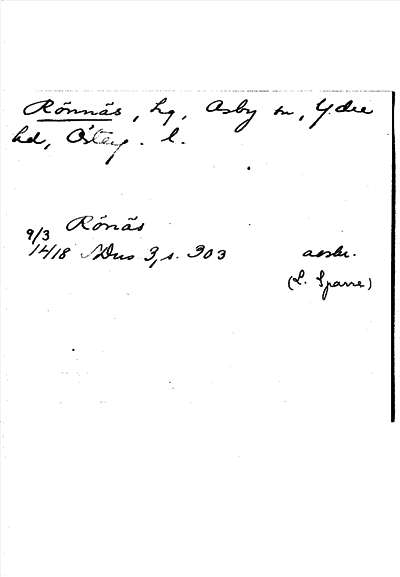 Rönnäs, hg, Asby sn, Ydre
hd, Österg. l.
Rönäs
9/3
1418 SDns 3, s. 303 avskr.
(L. Sparre)